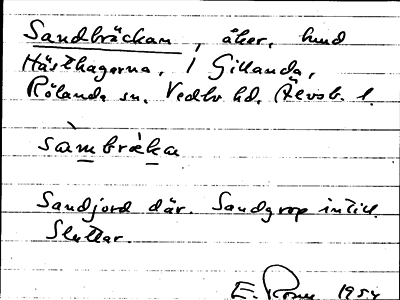 Sandbräckan, åker, hund
Hästhagarna, 1 Gillanda,
Rölanda sn. Vedbo hd. Älvsb. l.
sàmbrèka
Sandjord där. Sandgrop intill.
Sluttar.
E. 1954